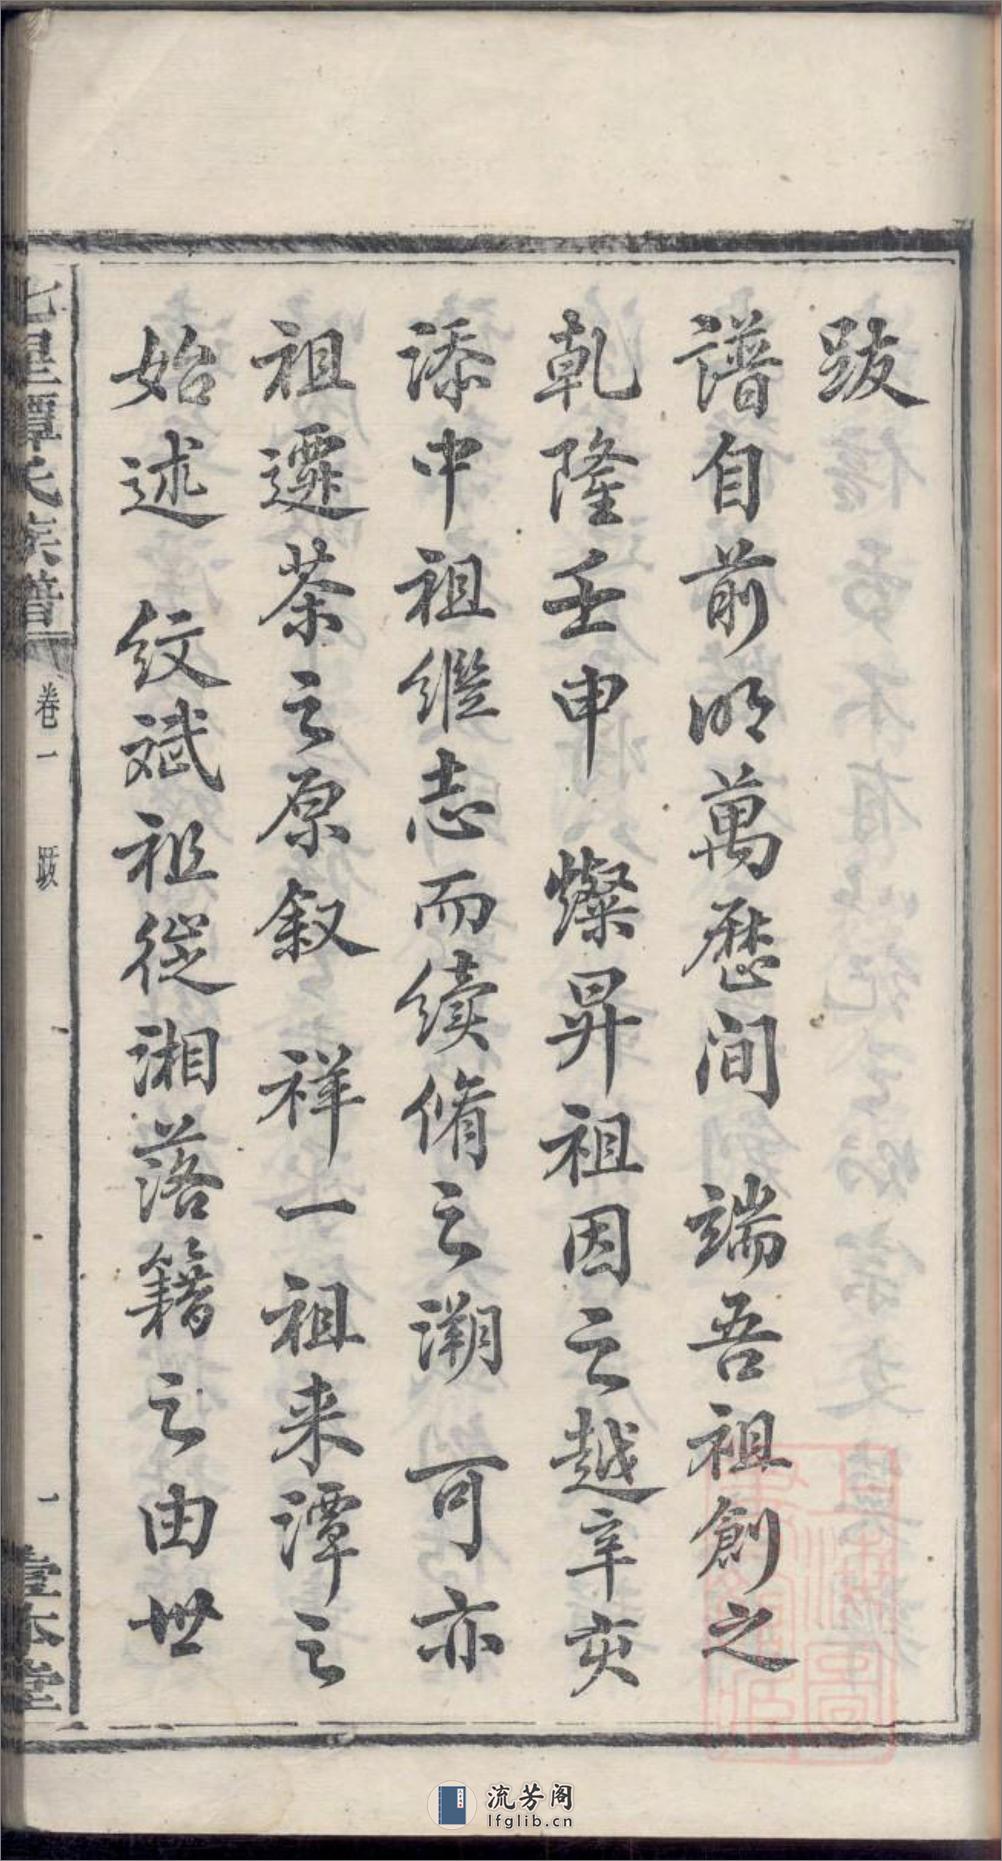 跋
譜自前明萬歷间 端吾祖創之
乾隆壬申 燦昇祖因之越辛亥
添中祖繼志而續脩之溯 可亦
祖遷茶之原叙 祥一祖来潭之
始述 紋斌祖從湘落籍之由世
七星譚氏族譜 卷一 跋 一 壹本堂
流芳阁
lfglib.cn